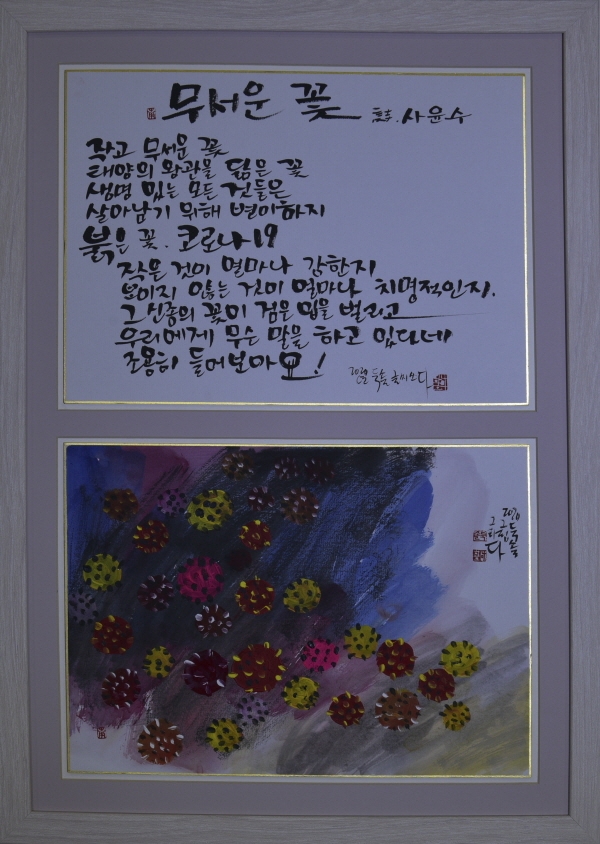 무서운 꽃 . 사윤수
작고 무서운 꽃
태양의 왕관을 닮은 꽃
생명 있는 모든 것들은
살아남기 위해 변이하지
붉은 꽃. 코로나19
작은 것이 얼마나 강한지
보이지 않는 것이 얼마나 치명적인지.
그 신종의 꽃이 검은 입을 벌리고
우리에게 무슨 말을 하고 있다네
조용히 들어보아요!